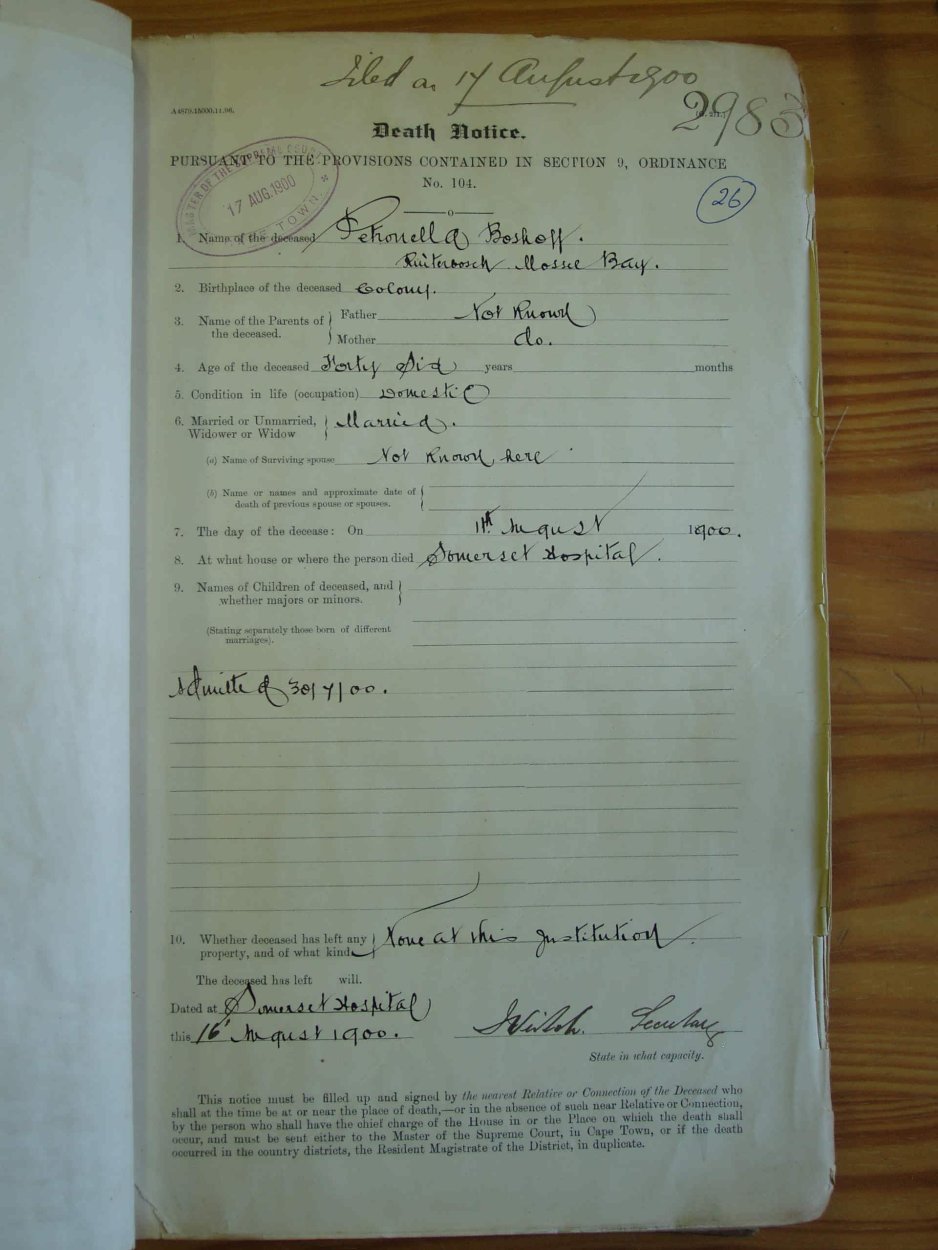 Filed on 17 August 1900
A4879.15000.11.96.
2983
Death Notice.
PURSUANT TO THE PROVISIONS CONTAINED IN SECTION 9, ORDINANCE
No. 104.
MASTER OF THE SUPREME COURT
17 AUG. 1900
TOWN
26
1. Name of the deceased Petronella Boshoff.
Mossel Bay.
2. Birthplace of the deceased Colony.
3. Name of the Parents of the deceased. Father Not Known
Mother do.
4. Age of the deceased Forty Six years months
5. Condition in life (occupation) Domestic
6. Married or Unmarried, Widower or Widow Married.
(a) Name of Surviving spouse Not Known here
(b) Name or names and approximate date of
death of previous spouse or spouses.
7. The day of the decease: On 11th August 1900.
8. At what house or where the person died Somerset Hospital.
9. Names of Children of deceased, and
whether majors or minors.
(Stating separately those born of different
marriages).
Admitted 30/7/00.
10. Whether deceased has left any
property, and of what kind None at this Institution.
The deceased has left will.
Dated at Somerset Hospital
this 16 August 1900. Secretary
State in what capacity.
This notice must be filled up and signed by the nearest Relative or Connection of the Deceased who
shall at the time be at or near the place of death,—or in the absence of such near Relative or Connection,
by the person who shall have the chief charge of the House in or the Place on which the death shall
occur, and must be sent either to the Master of the Supreme Court, in Cape Town, or if the death
occurred in the country districts, the Resident Magistrate of the District, in duplicate.